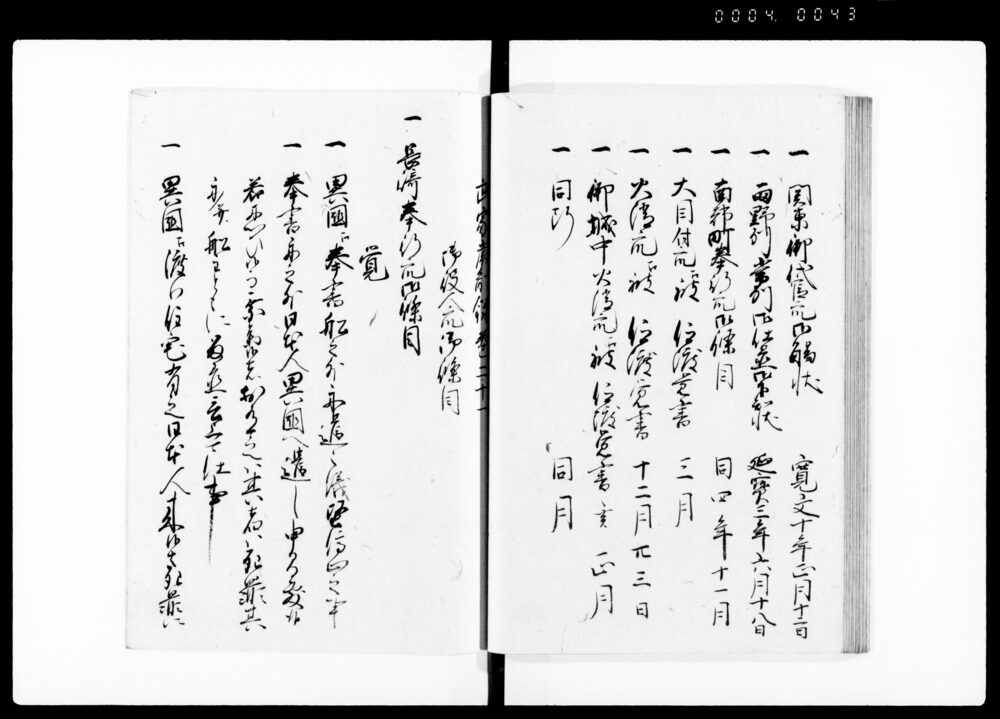 0004 0043
一 関東御代官江御觸状 寛文十年正月十一日
一 両野州常州御仕置御書状 延寳三年六月十八日
一 南部町奉行江御條目 同四年十一月
一 大目付江被 仰渡覚書 三月
一 火消江被 仰渡覚書 十二月廿三日
一 御城中火消江被 仰渡覚書 亥 正月
一 同断 同月
武家嚴制録 巻二十一
御役人江御條目
一 長崎奉行江御條目
覚
一 異國江奉書船之外舟遣之儀堅停止之事
一 奉書船之外日本人異國へ遣し申間敷候
若忍候而乗参候者於有之ハ其者ハ死罪其
舟并船主ともに留置言上可仕事
一 異國江渡り住宅有之日本人来候者死罪に